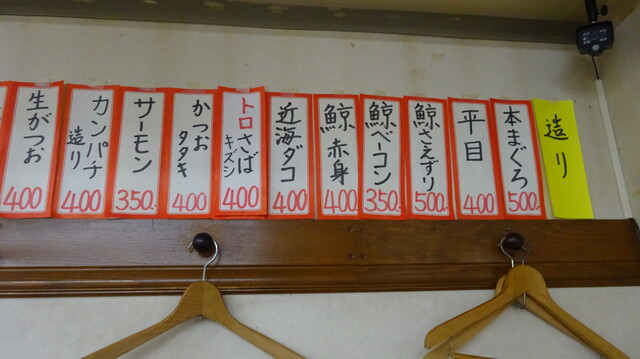 造り
本まぐろ
500
平目
400
鯨さえずり
500
鯨ベーコン
350.
鯨赤身
400
近海ダコ
400
トロさば
キズシ
400
かつお
タタキ
400
サーモン
350.
カンパチ
造り
400
生がつお
400